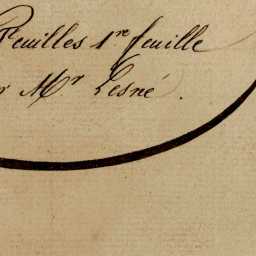 Feuilles 1re feuille
r Mr Lesné.